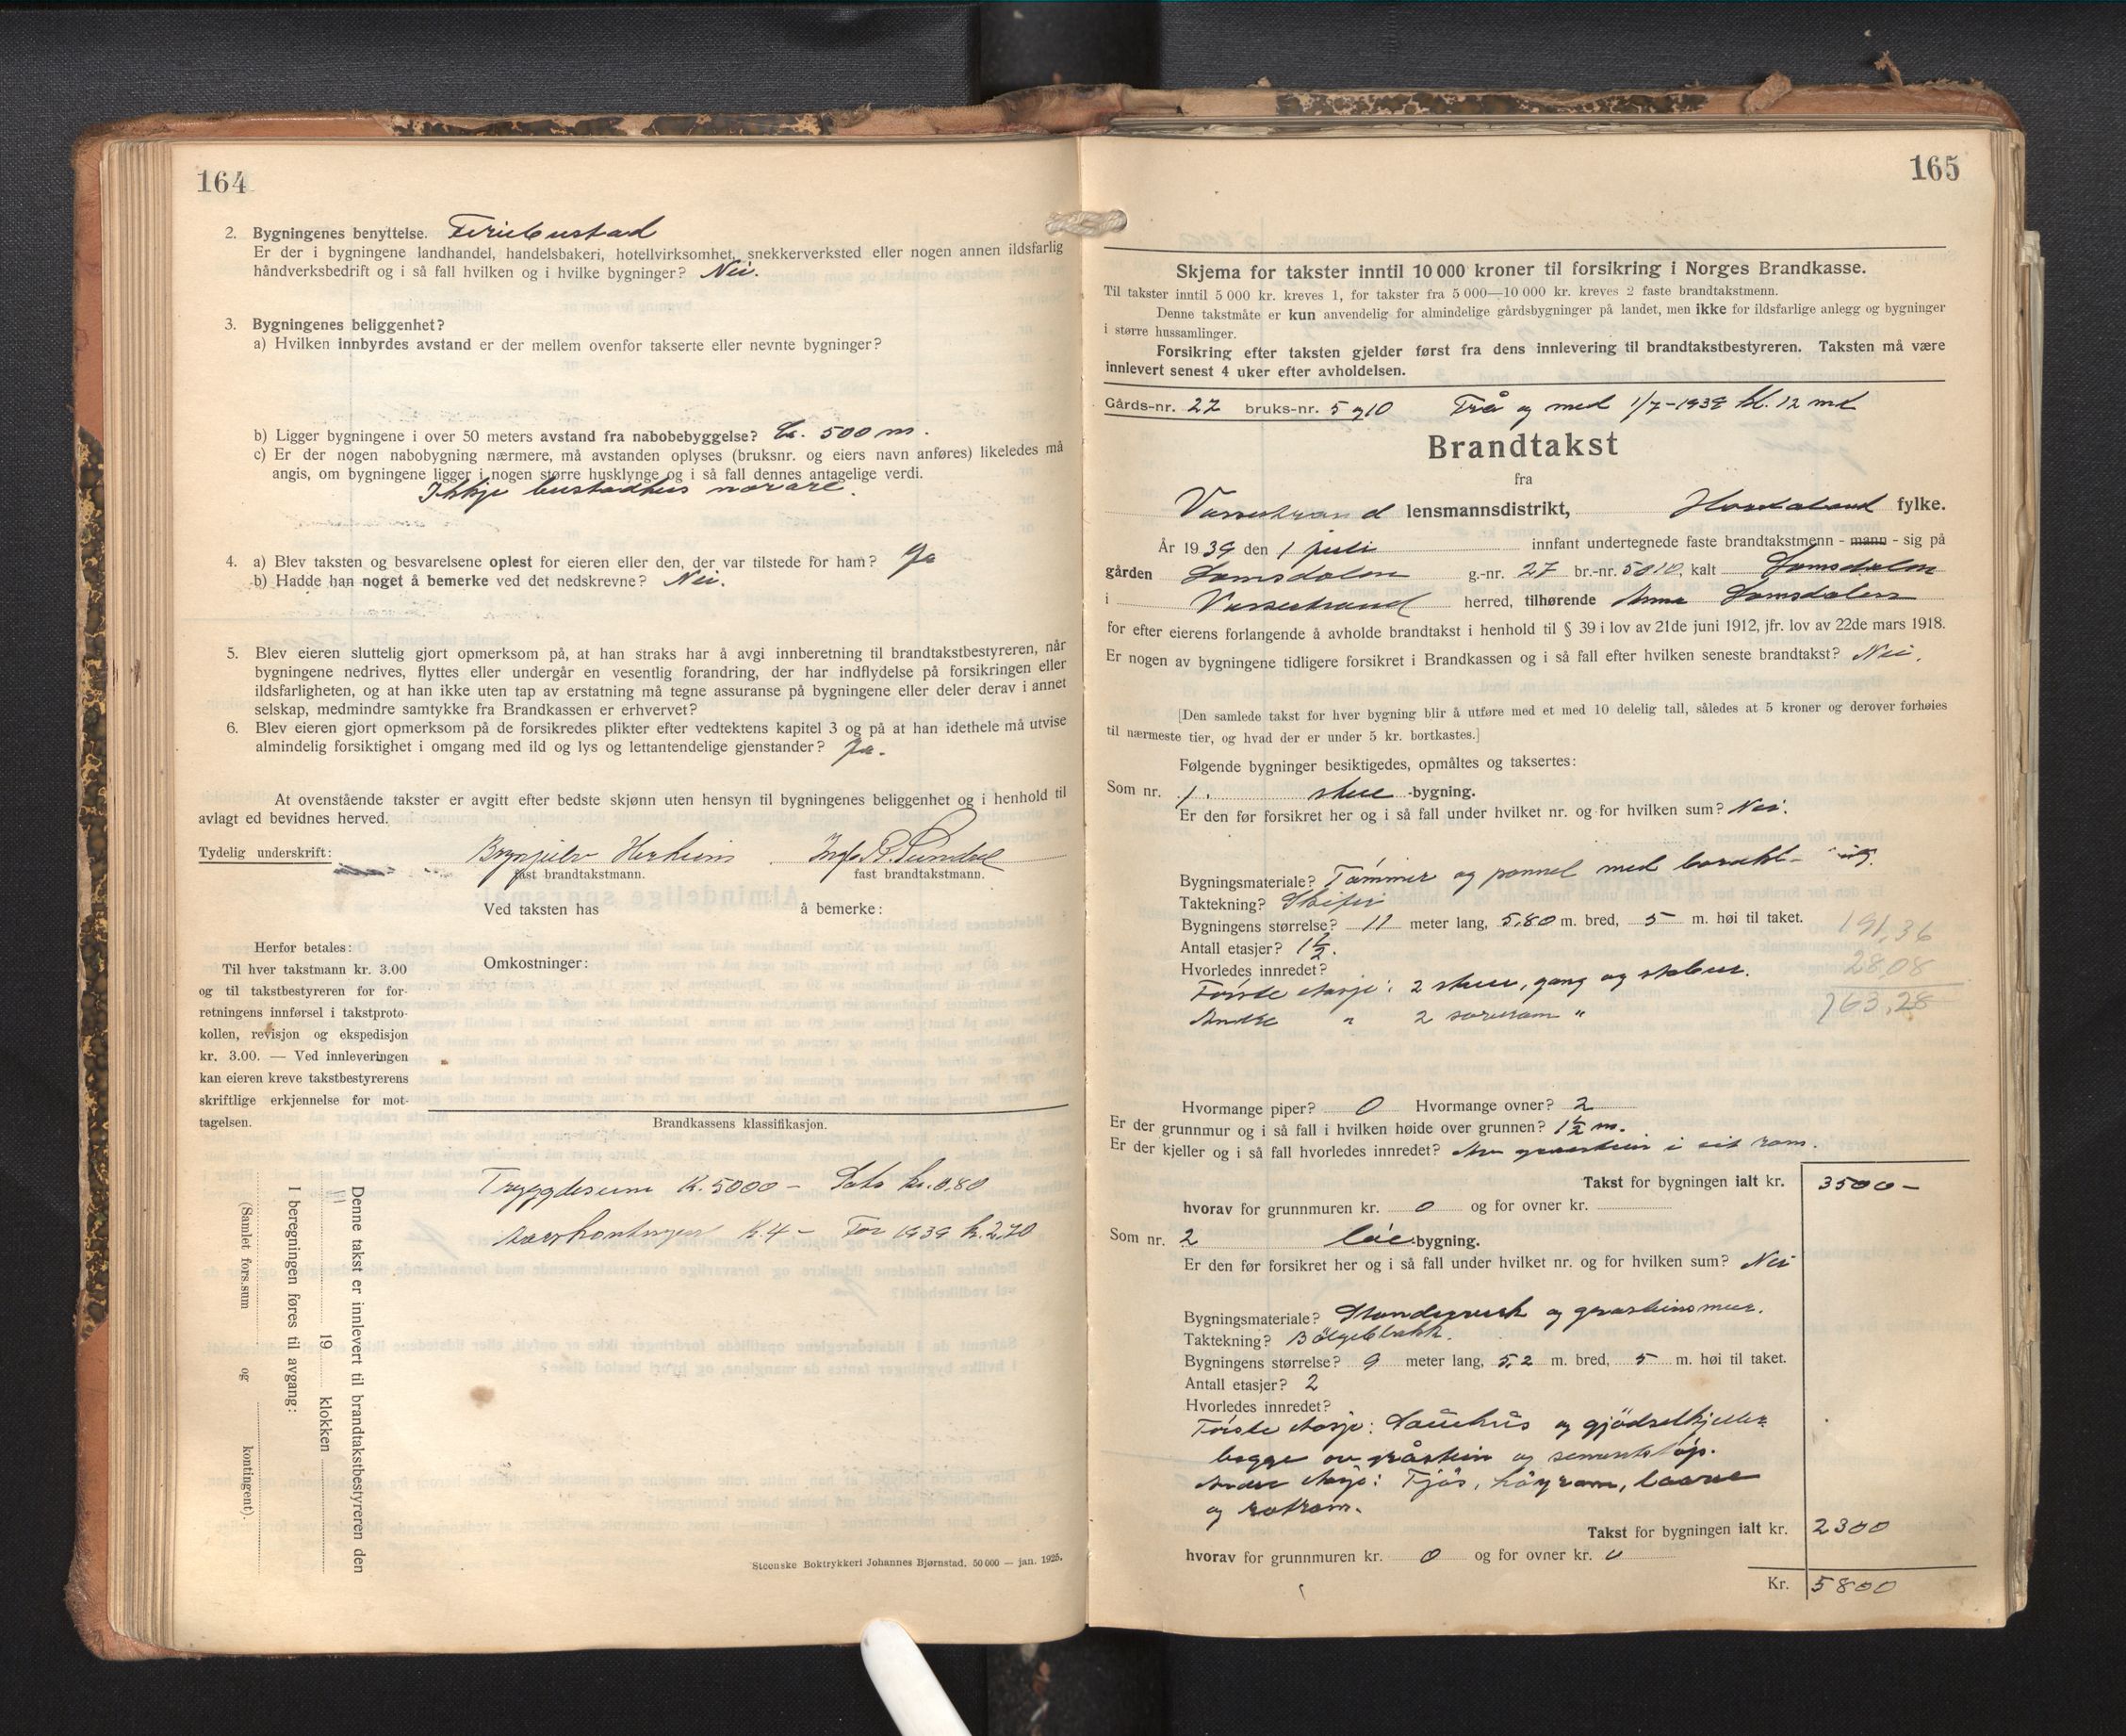 164
2. Bygningenes benyttelse. Feriebustad
Er der i bygningene landhandel, handelsbakeri, hotellvirksomhet, snekkerverksted eller nogen annen ildsfarlig
håndverksbedrift og i så fall hvilken og i hvilke bygninger? Nei.
3. Bygningenes beliggenhet?
a) Hvilken innbyrdes avstand er der mellem ovenfor takserte eller nevnte bygninger?
b) Ligger bygningene i over 50 meters avstand fra nabobebyggelse? Ca. 500 m.
c) Er der nogen nabobygning nærmere, må avstanden oplyses (bruksnr. og eiers navn anføres) likeledes må
angis, om bygningene ligger i nogen større husklynge og i så fall dennes antagelige verdi.
Ikkje bustadhus nærare.
4. a) Blev taksten og besvarelsene oplest for eieren eller den, der var tilstede for ham? Ja
b) Hadde han noget å bemerke ved det nedskrevne? Nei.
5. Blev eieren sluttelig gjort opmerksom på, at han straks har å avgi innberetning til brandtakstbestyreren, når
bygningene nedrives, flyttes eller undergår en vesentlig forandring, der har indflydelse på forsikringen eller
ildsfarligheten, og at han ikke uten tap av erstatning må tegne assuranse på bygningene eller deler derav i annet
selskap, medmindre samtykke fra Brandkassen er erhvervet?
6. Blev eieren gjort opmerksom på de forsikredes plikter efter vedtektens kapitel 3 og på at han idethele må utvise
almindelig forsiktighet i omgang med ild og lys og lettantendelige gjenstander? Ja.
At ovenstående takster er avgitt efter bedste skjønn uten hensyn til bygningenes beliggenhet og i henhold til
avlagt ed bevidnes herved.
Tydelig underskrift: Brynjulv Herheim
fast brandtakstmann. fast brandtakstmann.
Ved taksten has å bemerke:
Herfor betales:
Til hver takstmann kr. 3.00
og til takstbestyreren for for-
retningens innførsel i takstproto-
kollen, revisjon og ekspedisjon
kr. 3.00. — Ved innleveringen
kan eieren kreve takstbestyrerens
skriftlige erkjennelse for mot-
tagelsen.
Omkostninger:
Brandkassens klassifikasjon.
Tryggdesum K. 5000 - Sats kr. 0,80
Aarskontingent K. 4 - For 1939 kr. 2,70
Denne takst er innlevert til brandtakstbestyreren den
19 klokken
I beregningen føres til avgang:
(Samlet fors.sum og kontingent).
Steenske Boktrykkeri Johannes Bjørnstad. 50 000 — jan. 1925.
165
Skjema for takster inntil 10 000 kroner til forsikring i Norges Brandkasse.
Til takster inntil 5 000 kr. kreves 1, for takster fra 5 000—10 000 kr. kreves 2 faste brandtakstmenn.
Denne takstmåte er kun anvendelig for almindelige gårdsbygninger på landet, men ikke for ildsfarlige anlegg og bygninger
i større hussamlinger.
Forsikring efter taksten gjelder først fra dens innlevering til brandtakstbestyreren. Taksten må være
innlevert senest 4 uker efter avholdelsen.
Gårds-nr. 27 bruks-nr. 5 og 10 Frå og med 1/7-1939 kl. 12 md
Brandtakst
fra
Vossestrand lensmannsdistrikt, Hordaland fylke.
År 1939 den 1 juli innfant undertegnede faste brandtakstmenn - mann - sig på
gården Somsdalen g.-nr. 27 br.-nr. 5 o 10, kalt Somsdalen
i Vossestrand herred, tilhørende Anna Somsdalen
for efter eierens forlangende å avholde brandtakst i henhold til § 39 i lov av 21de juni 1912, jfr. lov av 22de mars 1918.
Er nogen av bygningene tidligere forsikret i Brandkassen og i så fall efter hvilken seneste brandtakst? Nei.
[Den samlede takst for hver bygning blir å utføre med et med 10 delelig tall, således at 5 kroner og derover forhøies
til nærmeste tier, og hvad der er under 5 kr. bortkastes.]
Følgende bygninger besiktigedes, opmåltes og taksertes:
Som nr. 1. stue -bygning.
Er den før forsikret her og i så fall under hvilket nr. og for hvilken sum? Nei.
Bygningsmateriale? Tømmer og pannel med bordkl-
Taktekning? Skifer
Bygningens størrelse? 11 meter lang, 5,80 m. bred, 5 m. høi til taket.
191,36
Antall etasjer? 1½.
28,08
Hvorledes innredet?
Første etasje: 2 stuer, gang og stabur.
163,28
Andre " 2 soverom "
Hvormange piper? 0 Hvormange ovner? 2
Er der grunnmur og i så fall i hvilken høide over grunnen? 1½ m.
Er der kjeller og i så fall hvorledes innredet? Av gråstein i eit rom.
Takst for bygningen ialt kr. 3500-
hvorav for grunnmuren kr. 0 og for ovner kr.
Som nr. 2 løe-bygning.
Er den før forsikret her og i så fall under hvilket nr. og for hvilken sum? Nei
Bygningsmateriale? Stenderverk og gråsteinsmur.
Taktekning? Bølgeblekk.
Bygningens størrelse? 9 meter lang, 5,2 m. bred, 5 m. høi til taket.
Antall etasjer? 2
Hvorledes innredet?
Første etasje: Sauehus og gjødselkjeller
begge av gråstein og sementstøp.
Andre etasje: Fjøs, høyrom, laave
og rotrom.
Takst for bygningen ialt kr. 2300
hvorav for grunnmuren kr. 0 og for ovner kr. 0
Kr. 5800